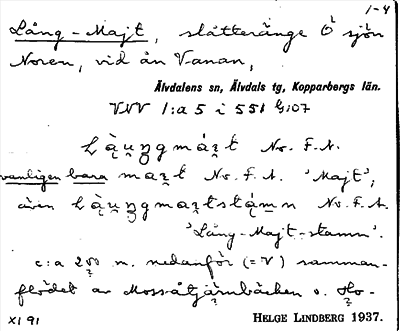 1-4
Lång-Majt, slåtteränge Ö sjön
Noren, vid ån Vanan,
Älvdalens sn, Älvdals tg, Kopparbergs län.
VNV 1:a 5 i 551 G:07
No. F.A.
vanligen bara No. F.A. 'Majt',
även No. F.A.
'Lång-Majt-stamn'.
c:a 200 m. nedanför (=V) samman-
flödet av Mossåtjärnbäcken o. Ho-
XI 91
HELGE LINDBERG 1937.